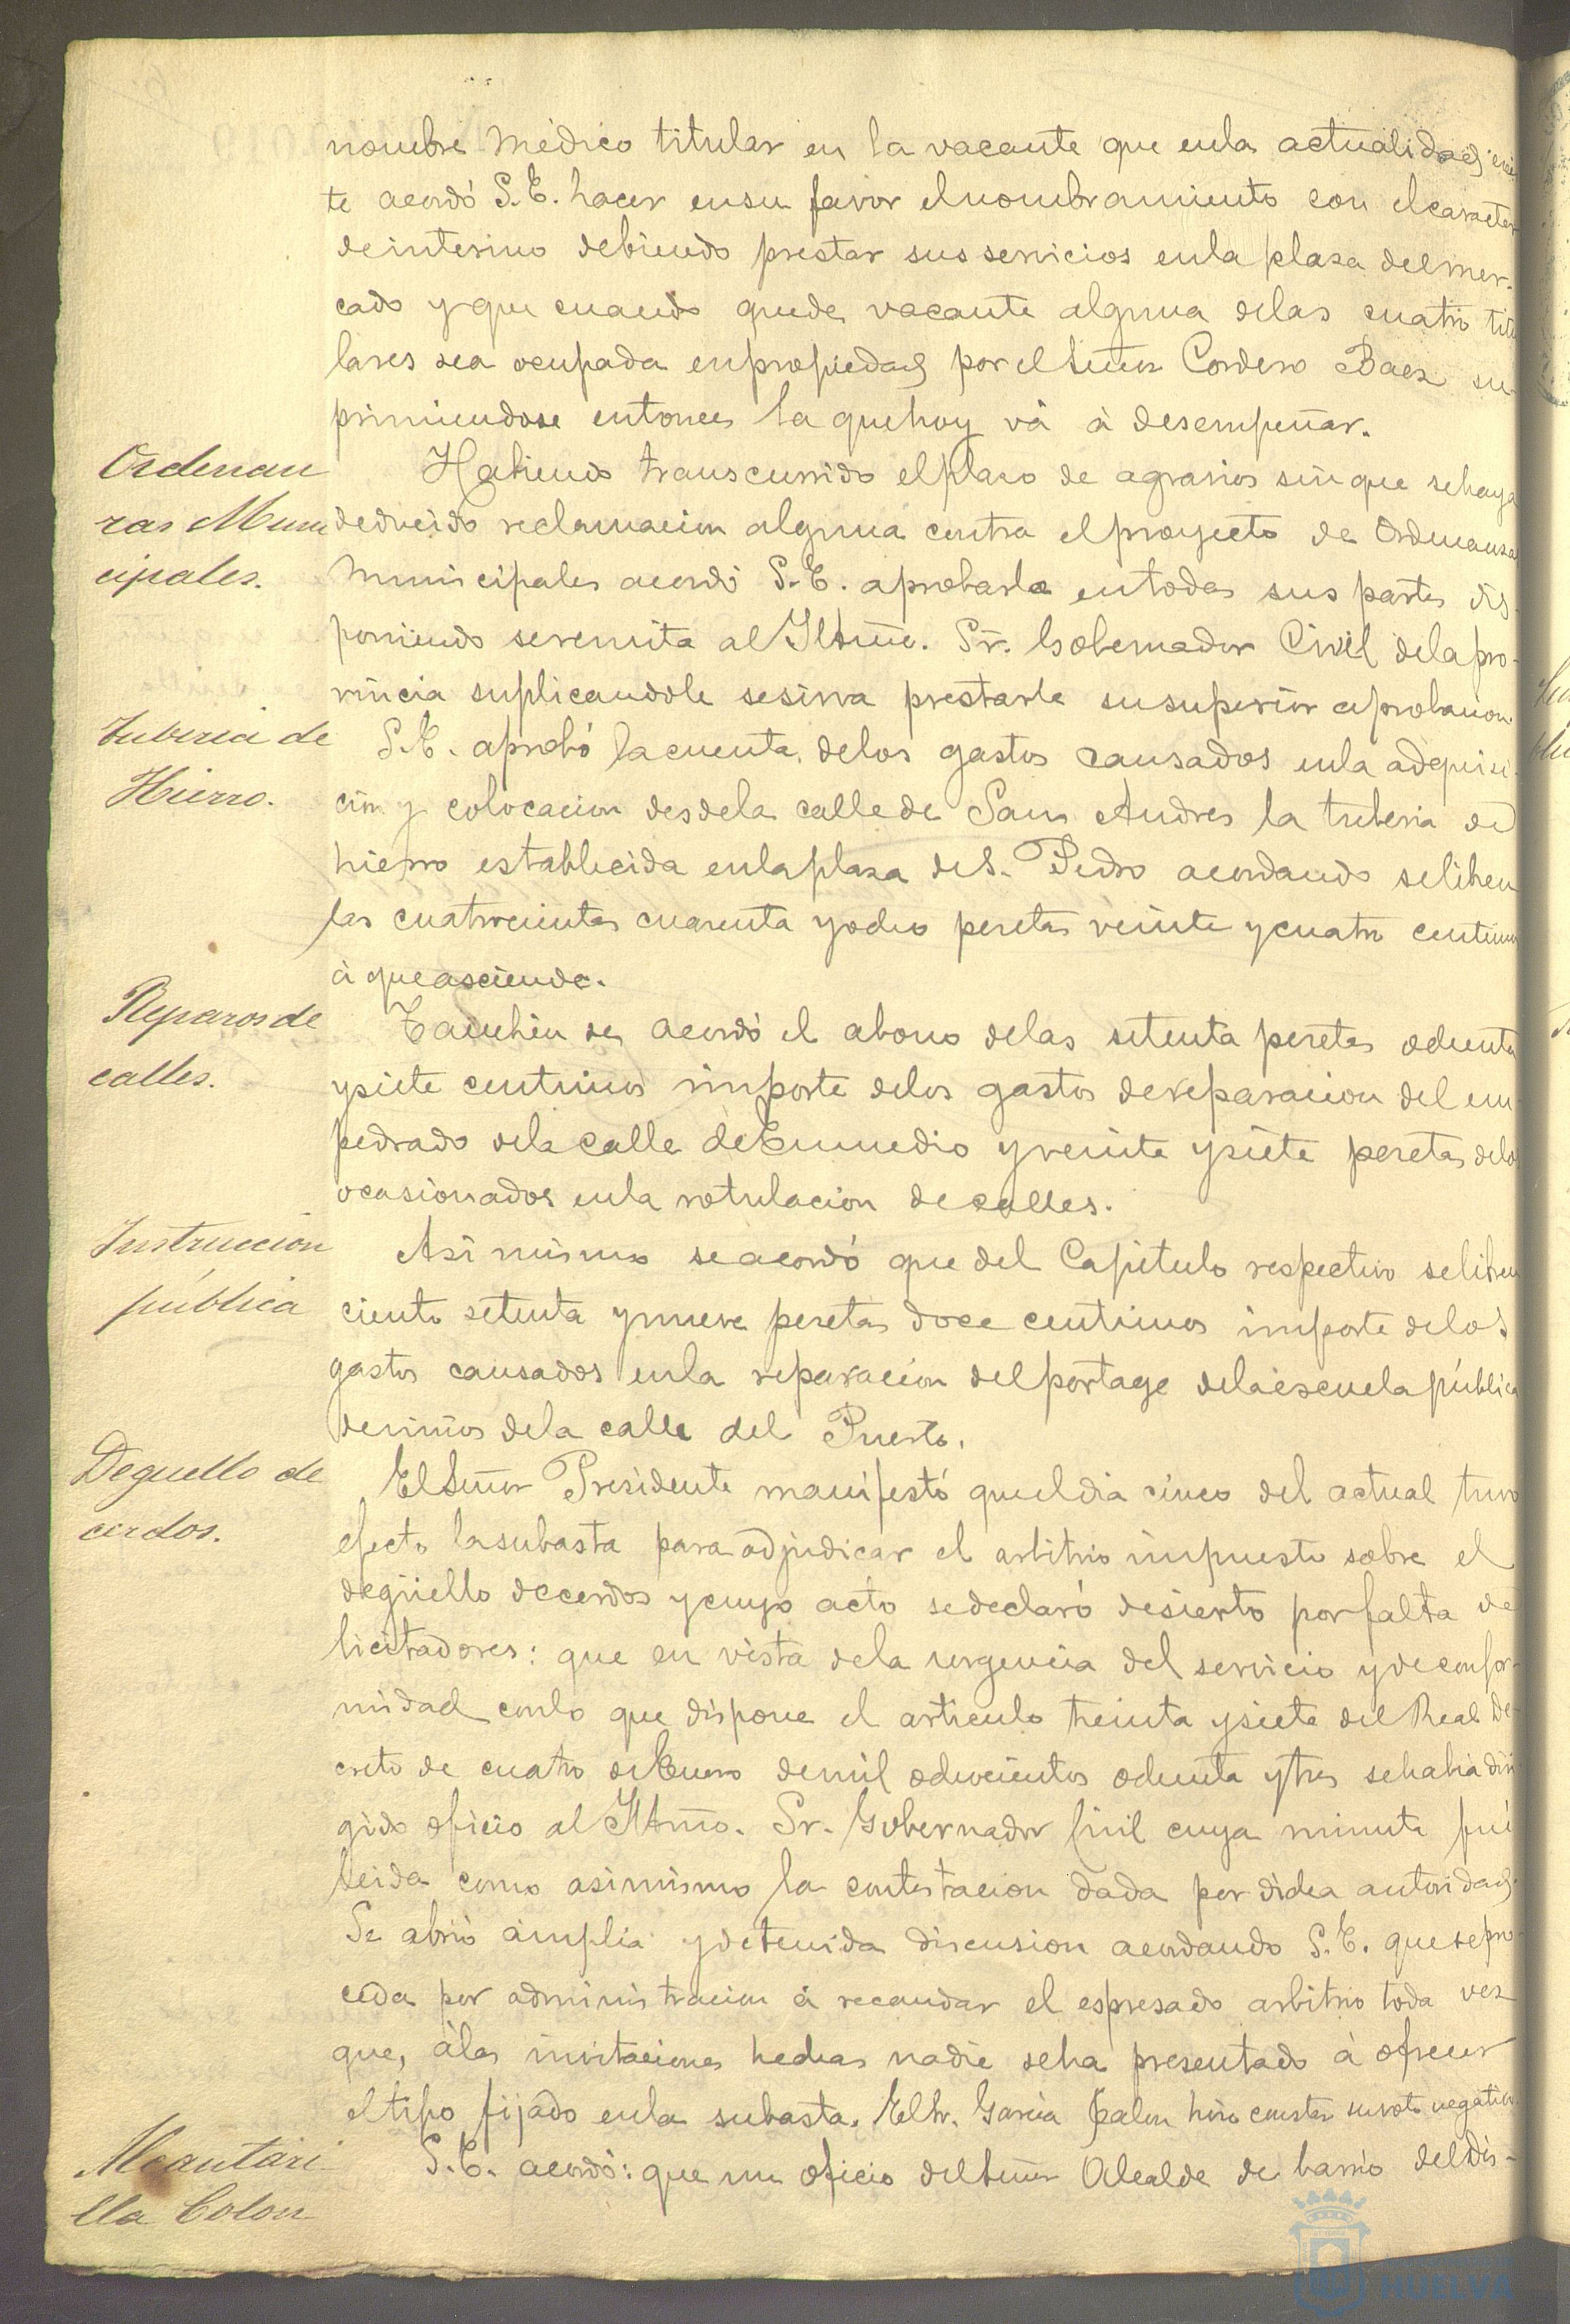 nombre Médico titular en la vacante que en la actualidad exis
te acordó S.E. hacer en su favor el nombramiento con el caracter
de interino debiendo prestar sus servicios en la plaza del mer-
cado y que cuando quede vacante alguna de las cuatro titu
lares sea ocupada en propiedad por el Señor Cordero Baez su
primiendose entonces la que hoy vá á desempeñar.
Ordenan
zas Muni
cipales.
Habiendo transcurrido el plazo de agravios sin que se haya
deducido reclamacion alguna contra el proyecto de Ordenanzas
Municipales acordó S.E. aprobarla en todas sus partes dis-
poniendo se remita al Iltmo. Sr. Gobernador Civil de la pro-
vincia suplicandole se sirva prestarle su superior aprobacion.
Tuberia de
Hierro.
S.E. aprobó la cuenta de los gastos causados en la adquisi-
cion y colocacion desde la calle de San Andres la tuberia de
hierro establecida en la plaza de S. Pedro acordando se libren
las cuatrocientas cuarenta y ocho pesetas veinte y cuatro centimos
á que asciende.
Reparos de
calles.
Tambien se acordó el abono de las setenta pesetas ochenta
y siete centimos importe de los gastos de reparacion del em-
pedrado de la calle de Enmedio y veinte y siete pesetas de los
ocasionados en la rotulacion de calles.
Instruccion
pública
Asi mismo se acordó que del Capitulo respectivo se libren
ciento setenta y nueve pesetas doce centimos importe de los
gastos causados en la reparacion del portage de la escuela pública
de niños de la calle del Puerto.
Deguello de
cerdos.
El Señor Presidente manifestó que el dia cinco del actual tuvo
efecto la subasta para adjudicar el arbitrio impuesto sobre el
degüello de cerdos y cuyo acto se declaró desierto por falta de
licitadores: que en vista de la urgencia del servicio y de confor-
midad con lo que dispone el articulo treinta y siete del Real De-
creto de cuatro de Enero de mil ochocientos ochenta y tres se habia diri
gido oficio al Iltmo. Sr. Gobernador Civil cuya minuta fué
leida como asimismo la contestacion dada por dicha autoridad.
Se abrió ámplia y detenida discusion acordando S.E. que se pro-
ceda por administracion á recaudar el espresado arbitrio toda vez
que, á las invitaciones hechas nadie se ha presentado á ofrecer
el tipo fijado en la subasta. El Sr. Garcia Palon hizo constar su voto negativo.
Alcantari-
lla Colon
S.E. acordó: que un oficio del Señor Alcalde de barrio del dis-
HUELVA